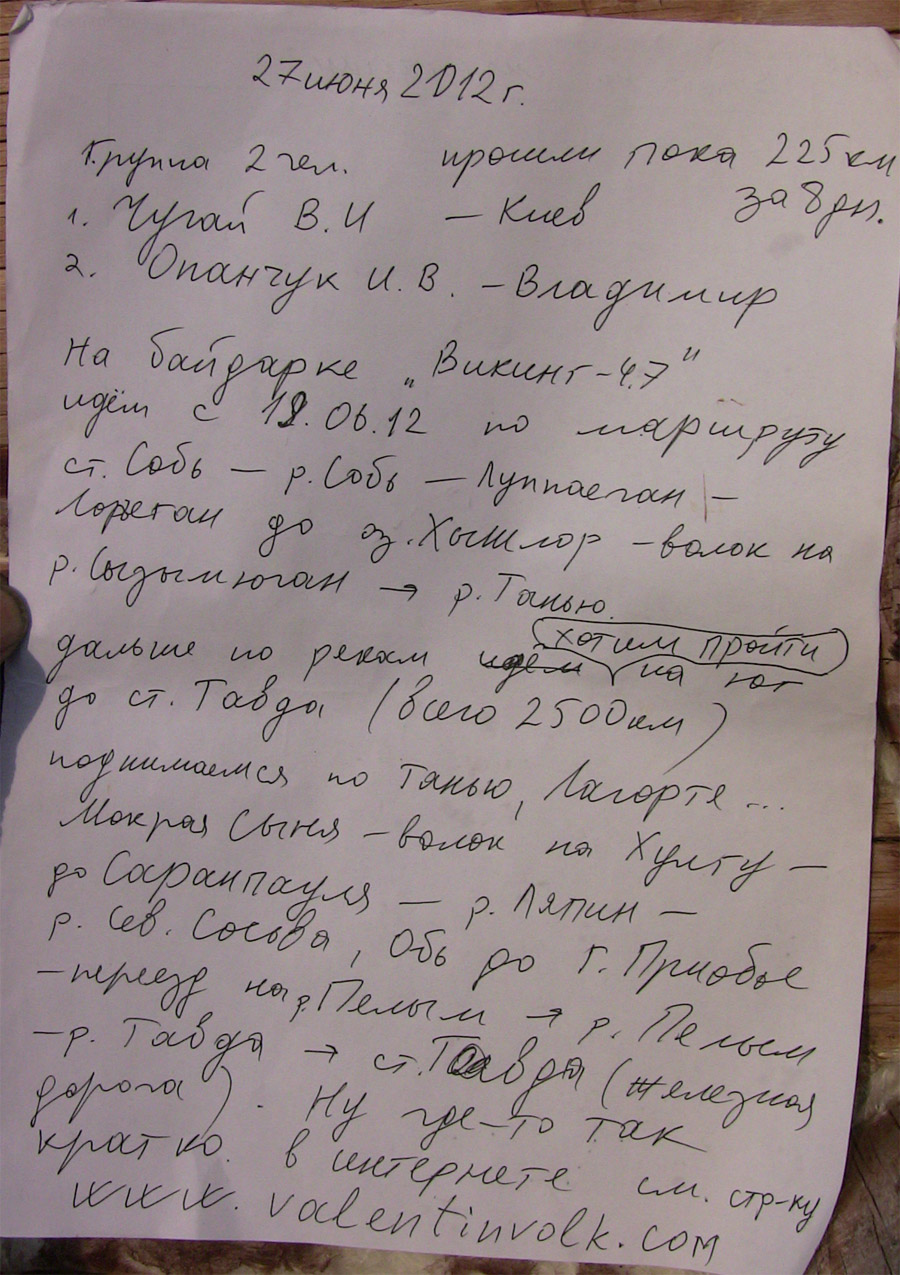 27 июня 2012 г.
Группа 2 чел. прошли пока 225 км
за 8 дн.
1. Чугай В.И — Киев
2. Опанчук И.В. — Владимир
На байдарке „Викинг-4.7"
идём с 19.06.12 по маршруту
ст. Собь — р. Собь — Луппаеган —
Лоръеган до оз. Хышлор — волок на
р. Сызымюган → р. Танью
хотим пройти
дальше по рекам идём на юг
до ст. Тавда (всего 2500 км)
поднимаемся по Танью, Лагорте ...
Мокрая Сыня — волок на Хулгу —
до Саранпауля — р. Ляпин —
р. Сев. Сосьва, Обь до г. Приобье
— переезд на р. Пелым → р. Пелым
— р. Тавда → ст. Тавда (железная
дорога). Ну где-то так
кратко. в интернете см. стр-ку
www.valentinvolk.com